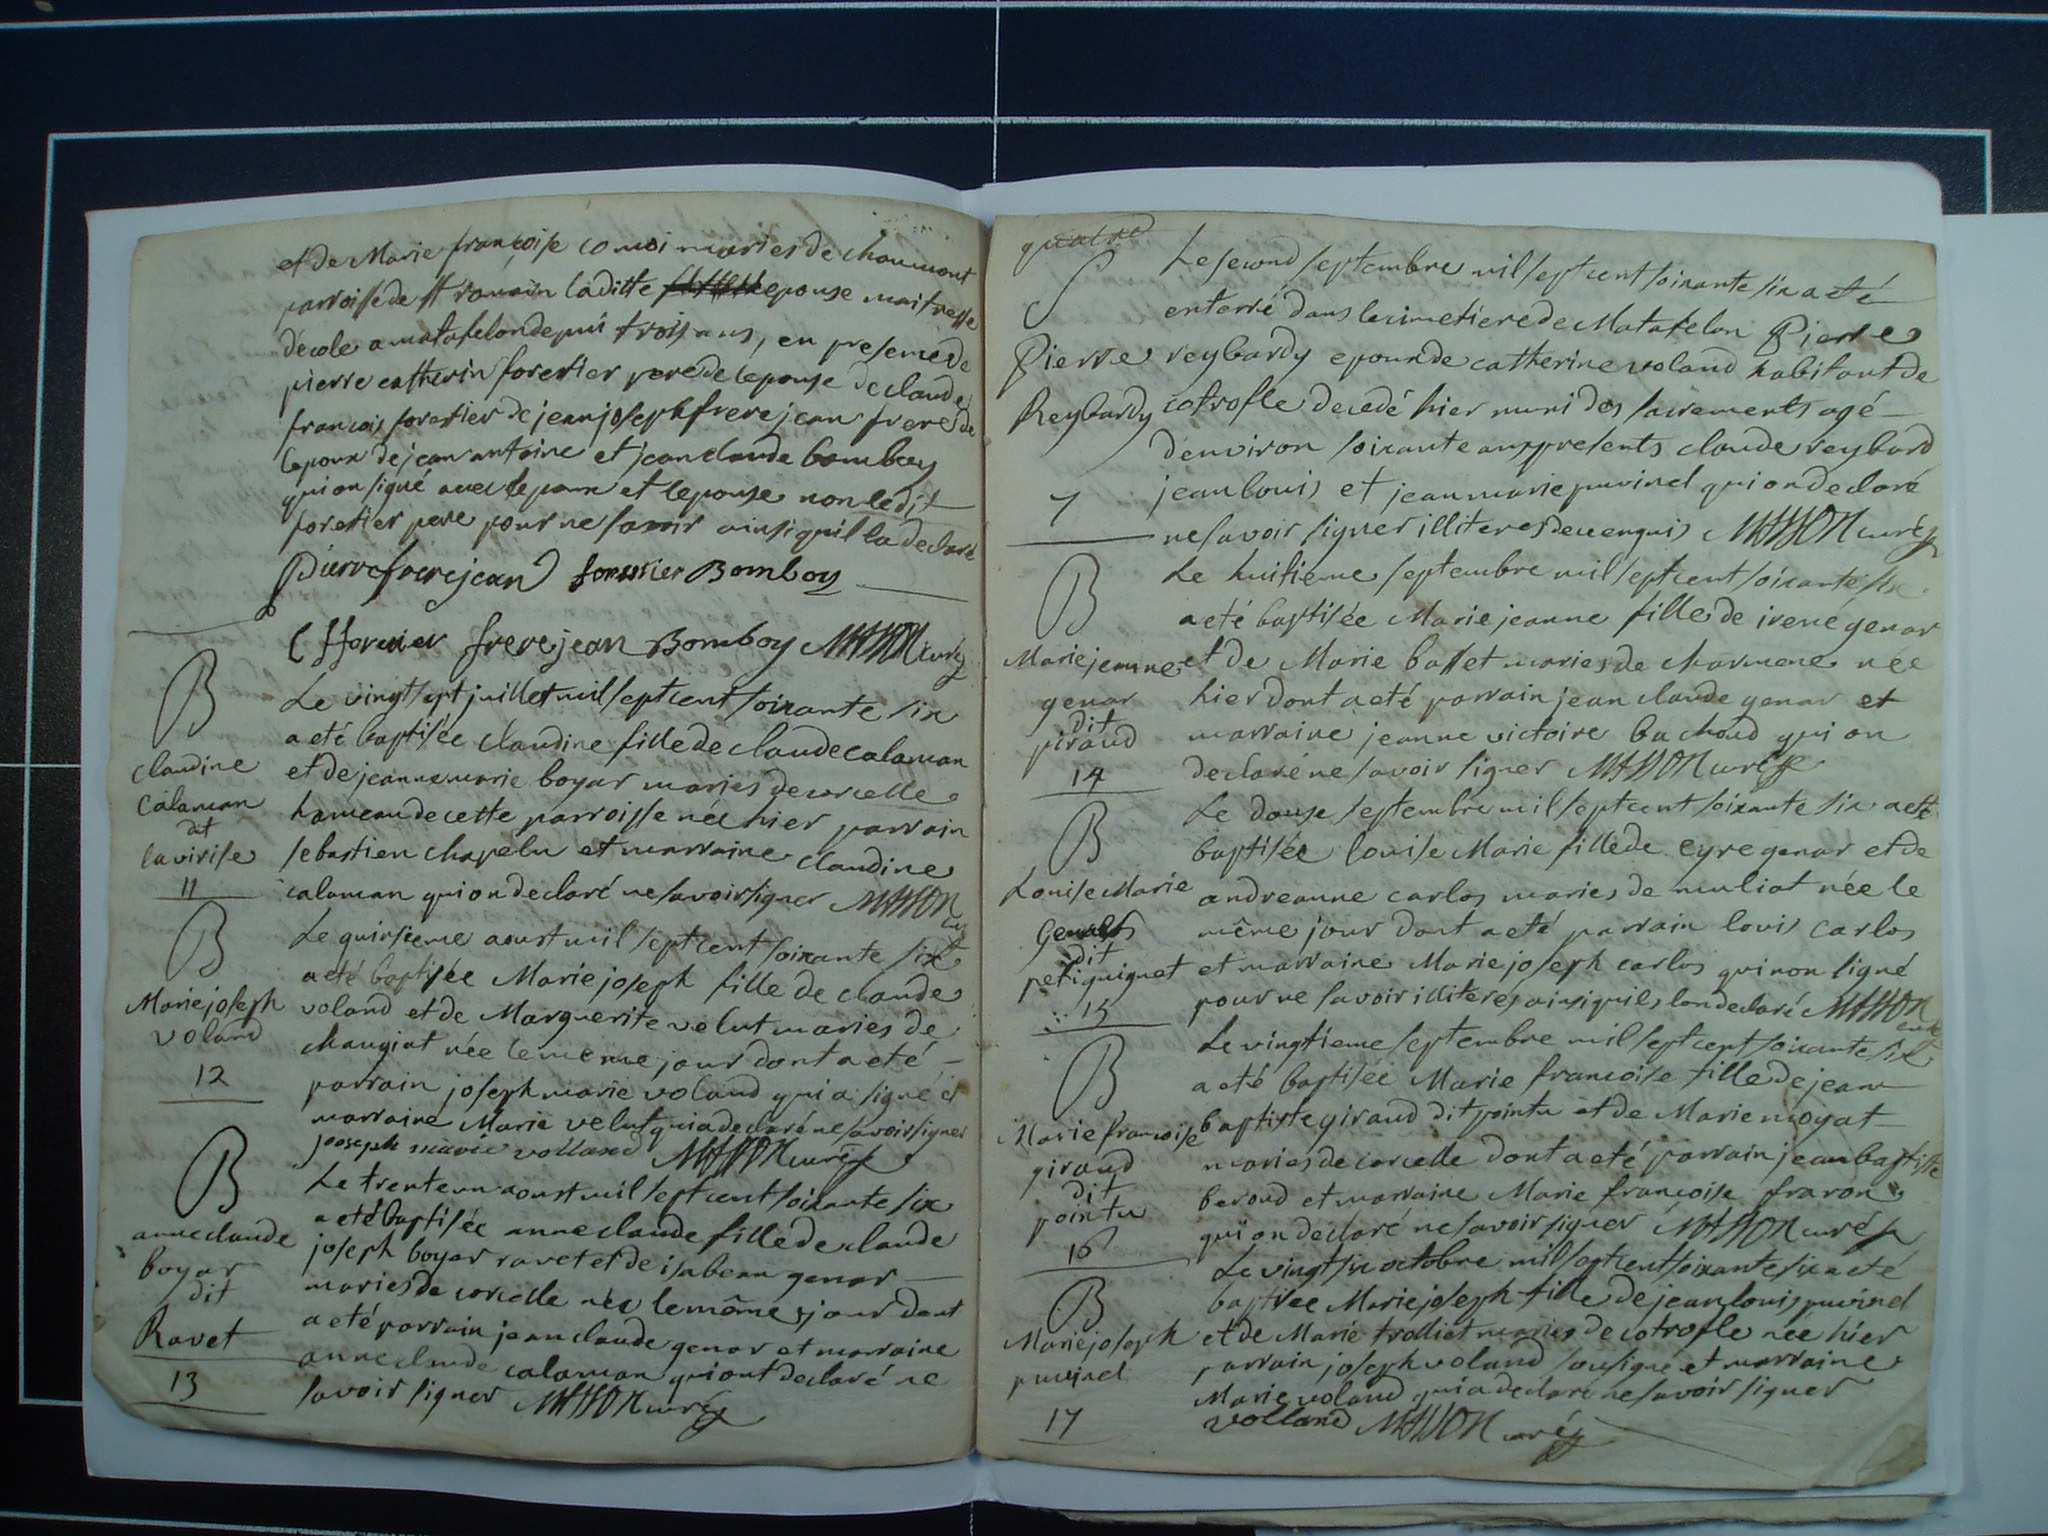 et de Marie françoise comoi maries de chaumont
parroisse de st romain laditte epouse maitresse
décole a matafelon depuis trois ans, en presence de
pierre catherin forestier pere de lepouse de claude
francois forestier de jean joseph frere jean frere de
lepoux de jean antoine et jean claude bomboy
qui on signé avec lepoux et lepouse non ledit
forestier pere pour ne savoir ainsi quil la declaré
Pierre frerejean forestier Bomboy
forestier frerejean Bomboy MASSON curé
B
claudine
calaman
dit
lavirise
11
Le vingt sept juillet mil sept cent soixante six
a eté baptisée claudine fille de claude calaman
et de jeanne marie boyar maries de corcelle
hameau de cette parroisse née hier parrain
sebastien chapelu et marraine claudine
calaman qui on declaré ne savoir signer MASSON
cu
B
Marie joseph
voland
12
Le quinsieme aoust mil sept cent soixante six
a eté baptisée Marie joseph fille de claude
voland et de Marguerite velut maries de
changiat née le meme jour dont a eté
parrain joseph marie voland qui a signé et
marraine Marie velut qui a declaré ne savoir signer
jooseph marie volland MASSON curé
B
anne claude
boyar
dit
Ravet
13
Le trente un aoust mil sept cent soixante six
a eté baptisée anne claude fille de claude
joseph boyar ravet et de isabeau genar
maries de corcelle née le même jour dont
a eté parrain jean claude genar et marraine
anne claude calaman qui ont declaré ne
savoir signer MASSON curé
quatre
S
Pierre
Reybardy
7
Le second septembre mil sept cent soixante six a eté
enterré dans le cimetiere de Matafelon Pierre
reybardy epoux de catherine voland habitant de
cotrofle decedé hier muni des sacrements agé
denviron soixante ans presents claude reybard
jean louis et jean marie puvinel qui on declaré
ne savoir signer illiteres de ce enquis MASSON curé
B
Marie jeanne
genar
dit
piraud
14
Le huitieme septembre mil sept cent soixante six
a eté baptisée Marie jeanne fille de irené genar
et de Marie basset maries de charmene née
hier dont a eté parrain jean claude genar et
marraine jeanne victoire bachoud qui on
declaré ne savoir signer MASSON curé
B
Louise Marie
Genar
dit
petiguignet
15
Le douse septembre mil sept cent soixante six a eté
baptisée louise Marie fille de eyre genar et de
andreanne carlos maries de muliat née le
même jour dont a eté parrain louis carlos
et marraine Marie joseph carlos qui non signé
pour ne savoir illiteres ainsi quils lon declaré MASSON
curé
B
Marie francoise
giraud
dit
pointu
16
Le vingtieme septembre mil sept cent soixante six
a eté baptisée Marie francoise fille de jean
baptiste giraud dit pointu et de Marie moyat
maries de corcelle dont a eté parrain jean baptiste
beroud et marraine Marie francoise fraron
qui on declaré ne savoir signer MASSON curé
B
Marie joseph
puvinel
17
Le vingt six octobre mil sept cent soixante six a eté
baptisee Marie joseph fille de jean louis puvinel
et de Marie trolliet maries de cotrofle née hier
parrain joseph voland sousigné et marraine
Marie voland qui a declaré ne savoir signer
volland MASSON curé